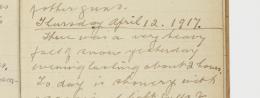 potter guns.
Thursday April 12. 1917.
There was a very heavy
fall of snow yesterday
evening lasting about 2 hours.
To day is showery with